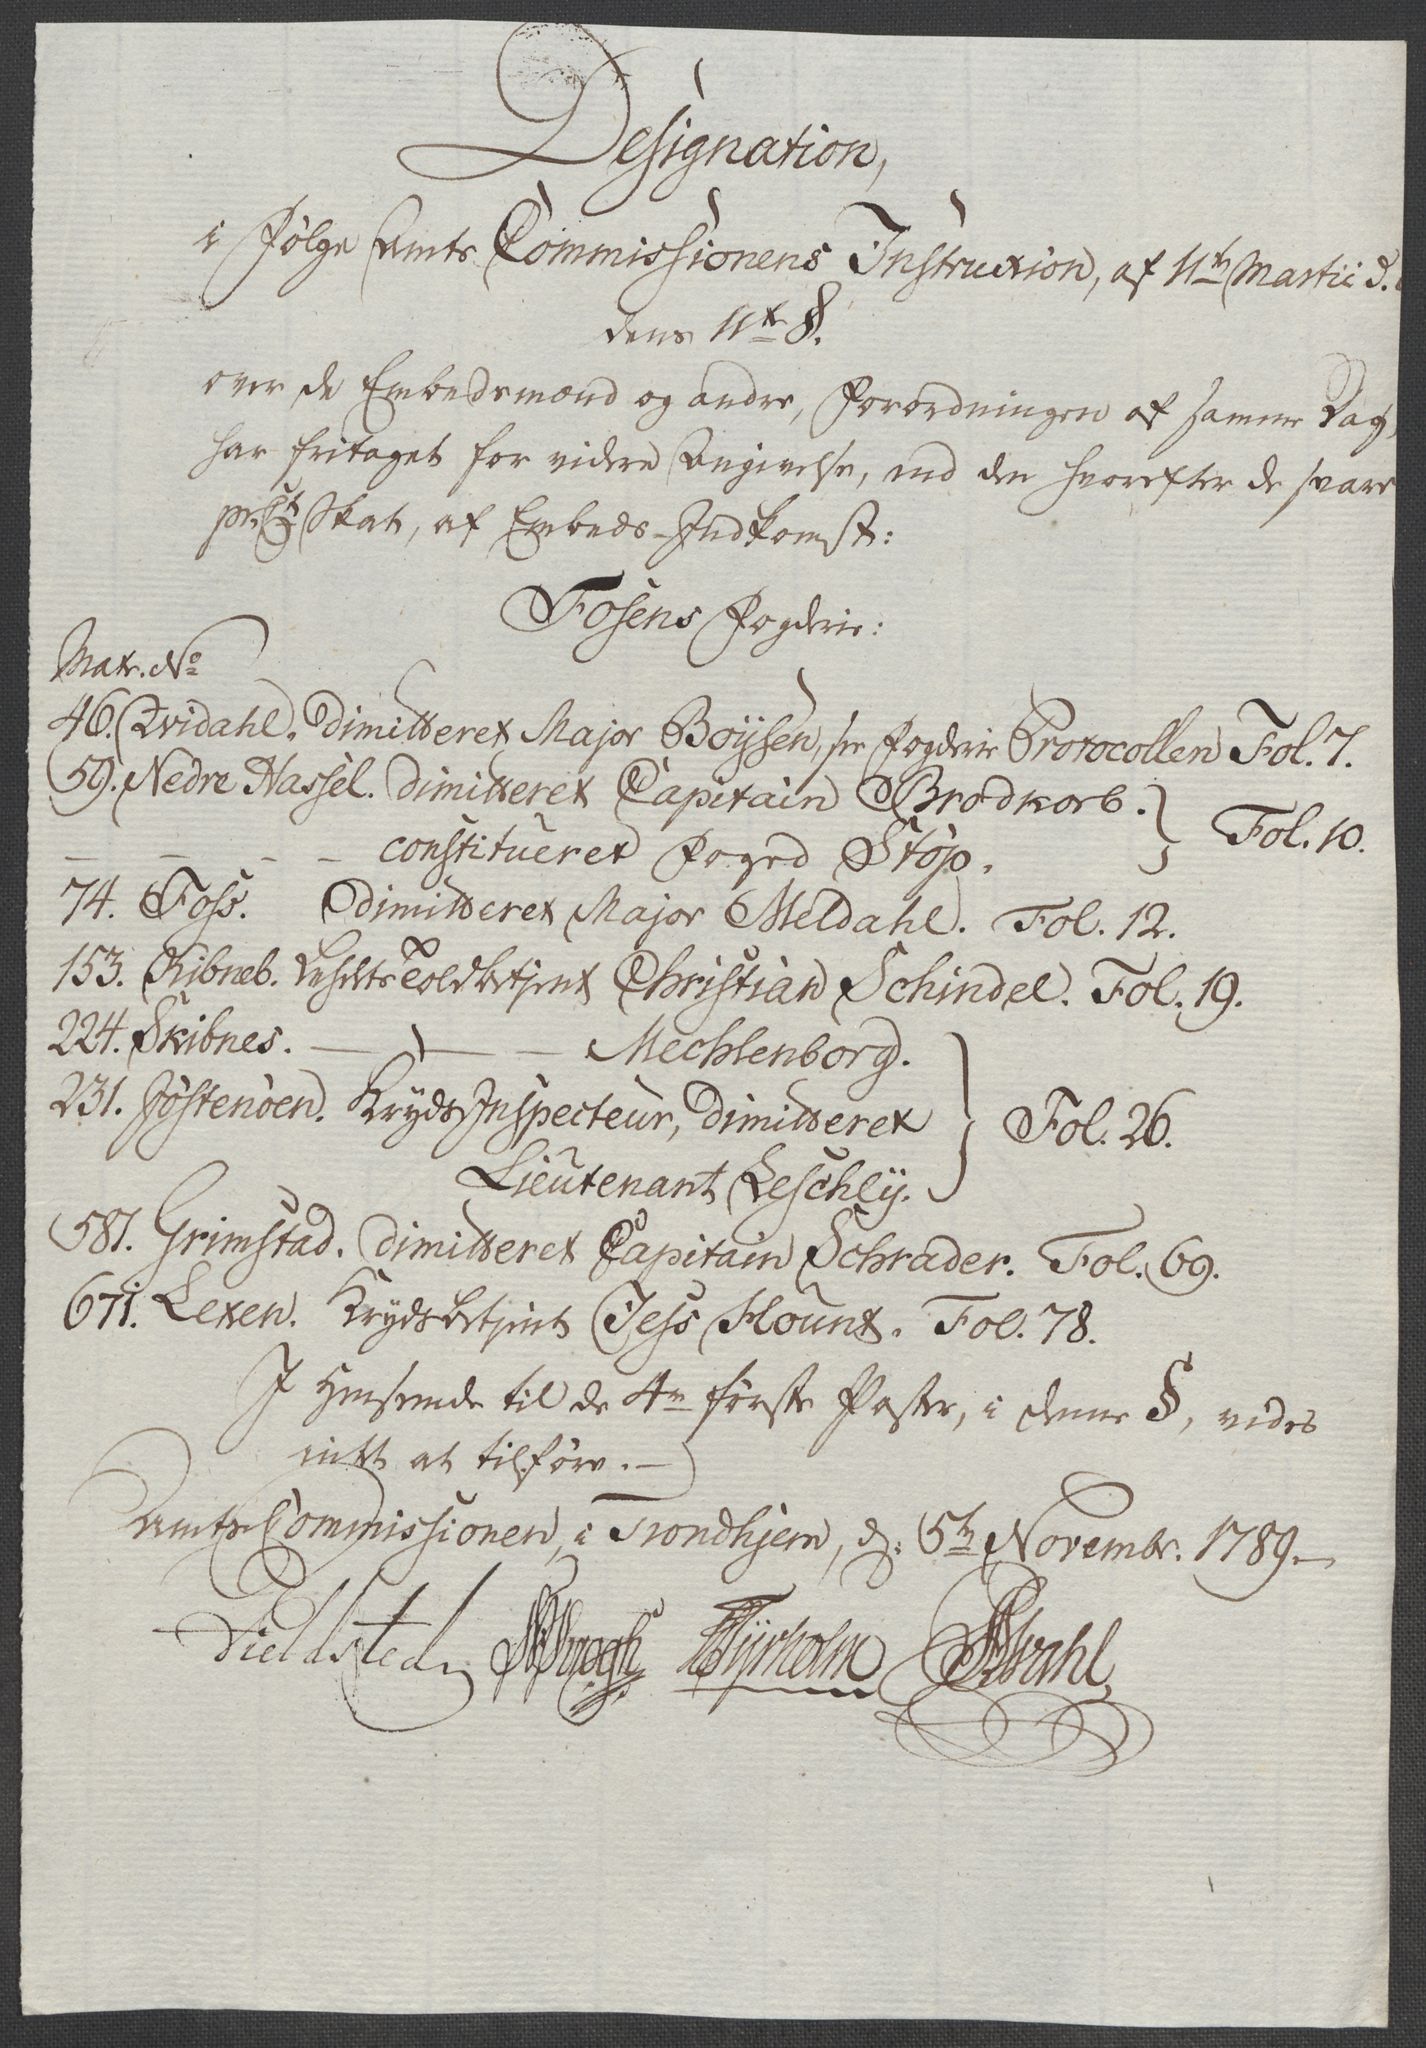 Designation,
i Følge Amts Commissionens Instruction, af 11te Martii d.
dens 11te §.
over de Embedsmænd og andre, Forordningen af samme Dag,
har fritaget for videre Angivelse, end den hvorefter de svare
pr. Ct. Skat, af Embeds-Indkomst:
Fosens Fogderie:
Matr. No
46. Qvidahl. dimitteret Major Boijsen, see Fogderie Protocollen Fol. 7.
59. Nedre Hassel. dimitteret Capitain Brodkorb. } Fol. 10.
— — — — constitueret Foged Støp.
74. Foss. dimitteret Major Meldahl. Fol. 12.
153. Ribneb. Toldbetient Christian Schindel. Fol. 19.
224. Skibnes. — — — Mechlenborg. } Fol. 26.
231. Jøstenøen. Kryds Inspecteur, dimitteret
Lieutenant Leschly.
581. Grimstad. dimitteret Capitain Schrader. Fol. 69.
671. Lexen. Krydsbetient Jess Flount. Fol. 78.
I Henseende til de 4re første Poster, i denne §, vides
intet at tilføre. —
Amts Commissionen, i Trondhjem, d: 5te Novembr. 1789. —
Fieldsted Tyrholm